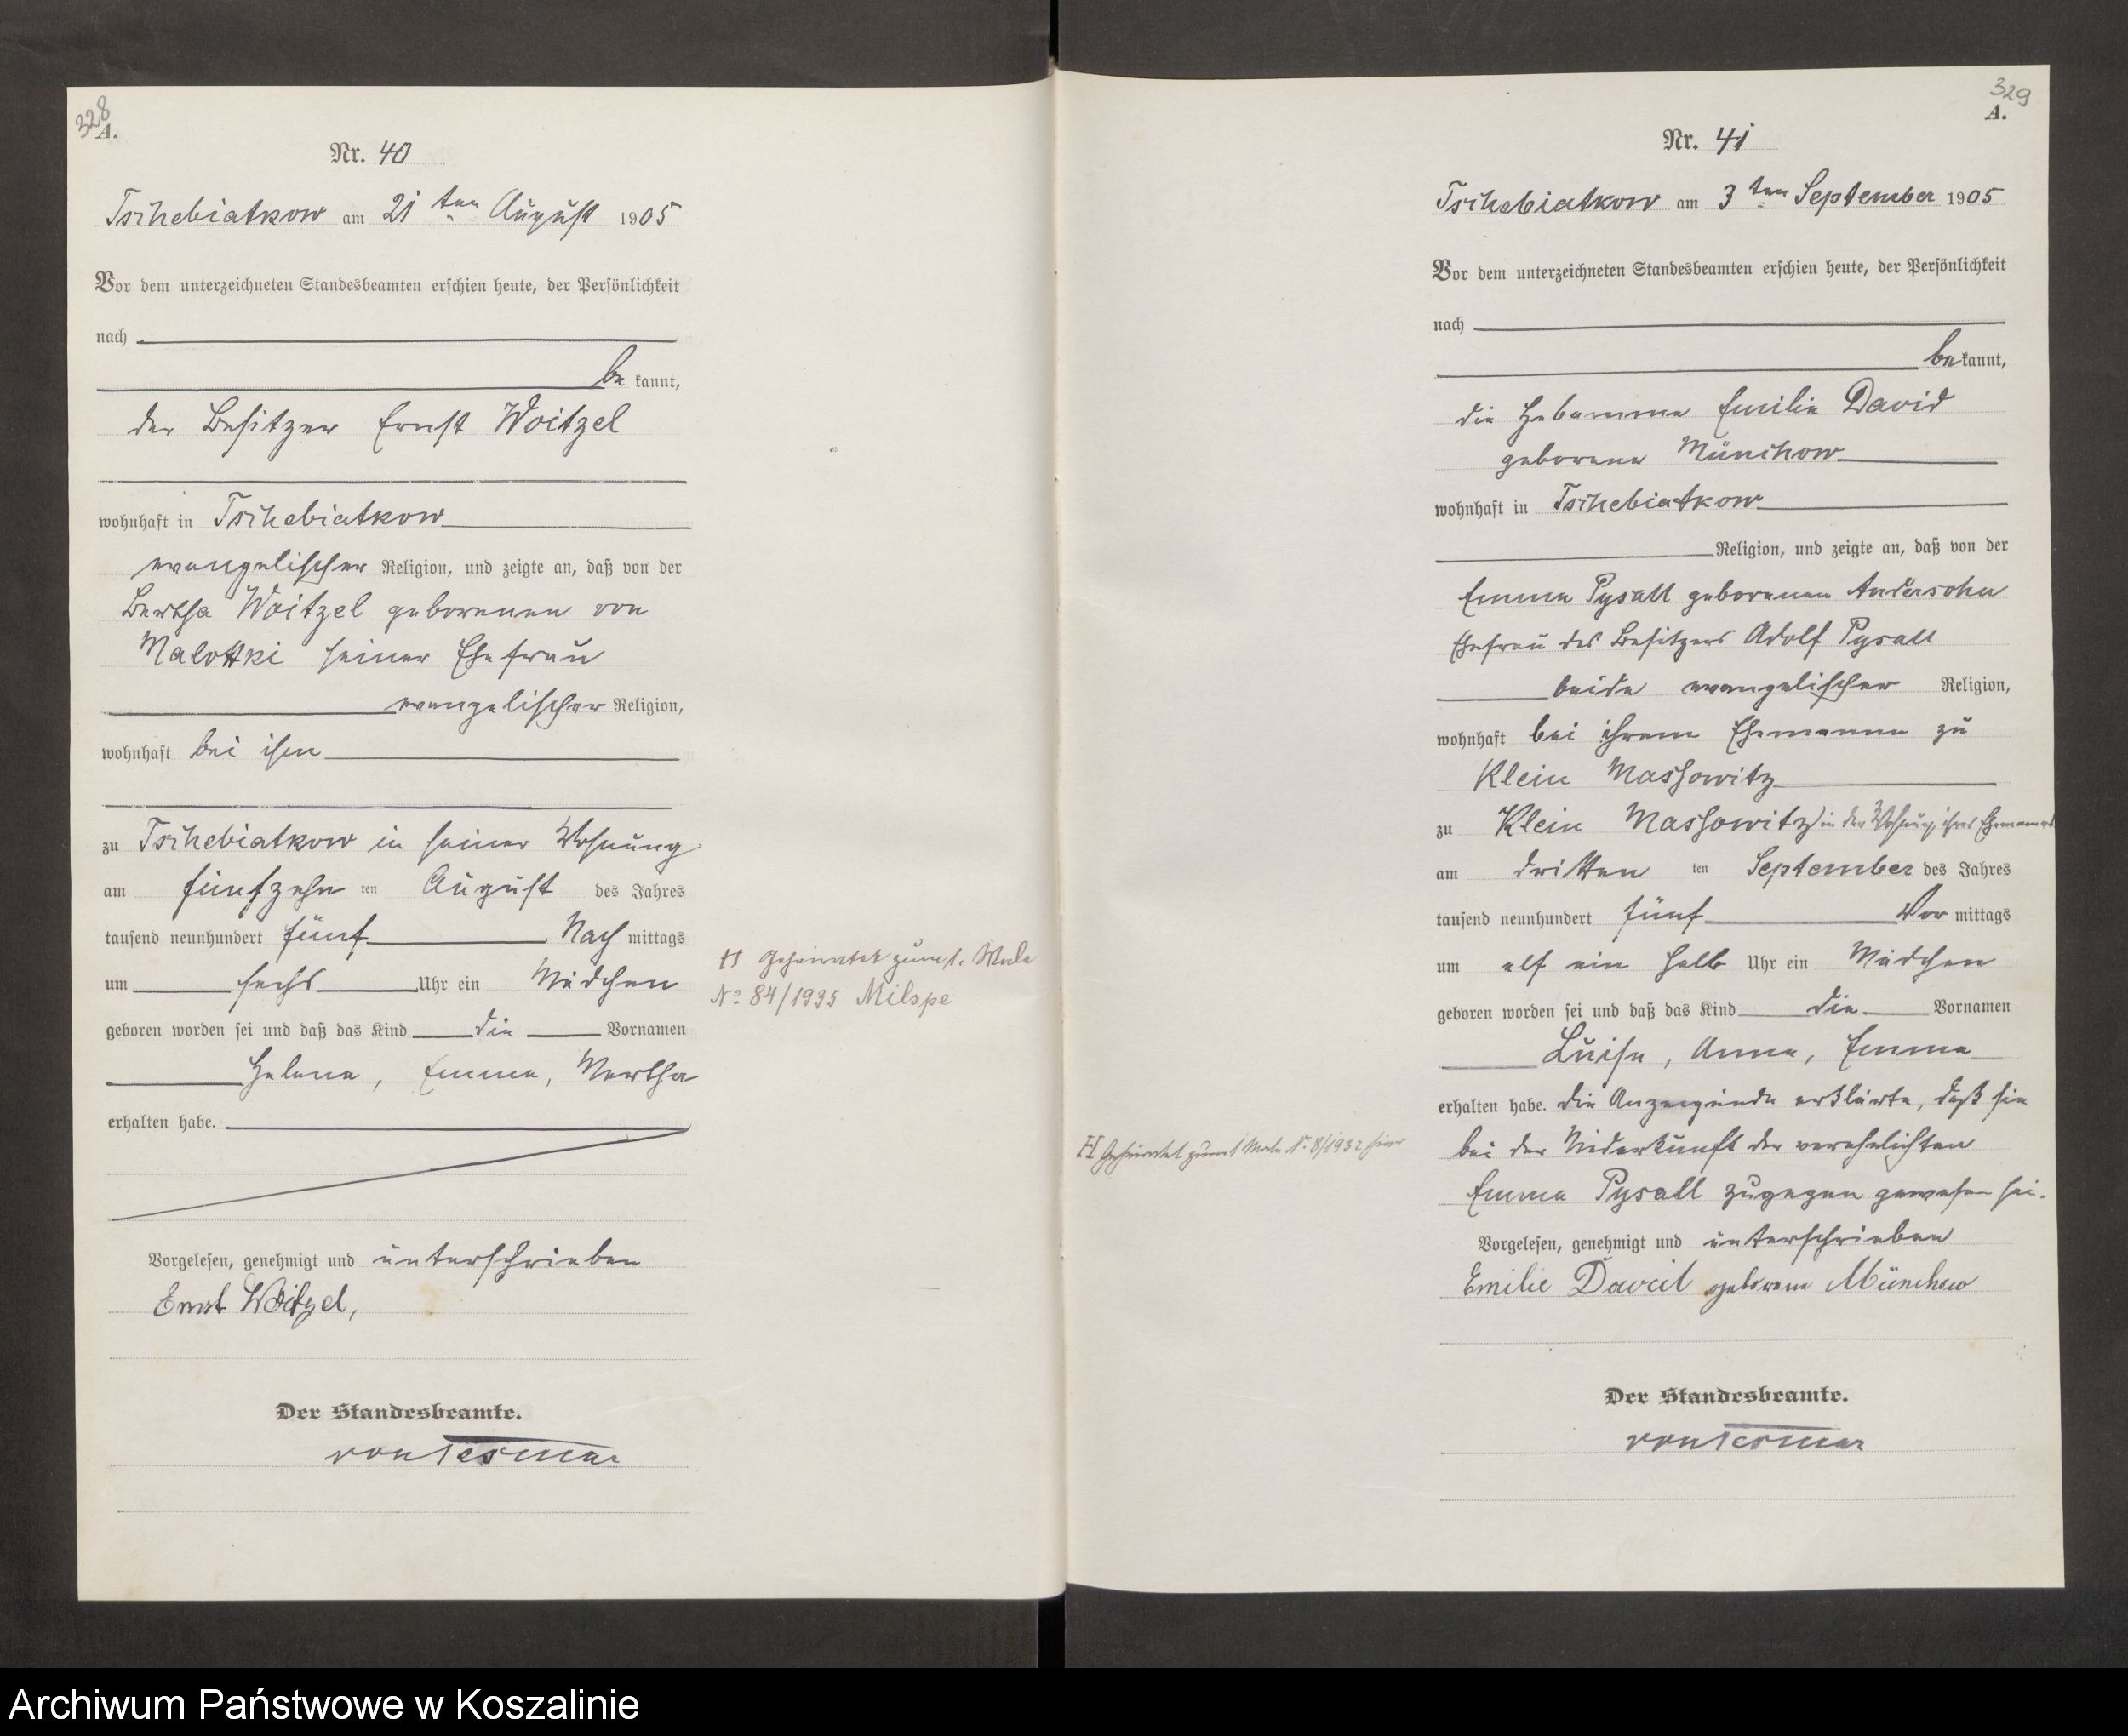 328
A.
Nr. 40
Tschebiatkow am 21 ten August 1905
Vor dem unterzeichneten Standesbeamten erschien heute, der Persönlichkeit
nach
be kannt,
der Besitzer Ernst Woitzel
wohnhaft in Tschebiatkow
evangelischer Religion, und zeigte an, daß von der
Bertha Woitzel geborenen von
Malottki seiner Ehefrau
evangelischer Religion,
wohnhaft bei ihm
zu Tschebiatkow in seiner Wohnung
am fünfzehn ten August des Jahres
tausend neunhundert fünf Nach mittags
um sechs Uhr ein Mädchen
geboren worden sei und daß das Kind die Vornamen
Helene, Emma, Martha
erhalten habe.
Vorgelesen, genehmigt und unterschrieben
Ernst Woitzel,
Der Standesbeamte.
von Tesmar
H Geheiratet zum 1. Male
No 84/1935 Milspe
329
A.
Nr. 41
Tschebiatkow am 3 ten September 1905
Vor dem unterzeichneten Standesbeamten erschien heute, der Persönlichkeit
nach
be kannt,
die Hebamme Emilie David
geborene Münchow
wohnhaft in Tschebiatkow
Religion, und zeigte an, daß von der
Emma Pysall geborenen Andersohn
Ehefrau des Besitzers Adolf Pysall
beide evangelischer Religion,
wohnhaft bei ihrem Ehemanne zu
Klein Massowitz
zu Klein Massowitz in der Wohnung ihres Ehemannes
am dritten ten September des Jahres
tausend neunhundert fünf Vor mittags
um elf ein halb Uhr ein Mädchen
geboren worden sei und daß das Kind die Vornamen
Luise, Anna, Emma
erhalten habe. Die Anzeigende erklärte, daß sie
bei der Niederkunft der verehelichten
Emma Pysall zugegen gewesen sei.
Vorgelesen, genehmigt und unterschrieben
Emilie David geborene Münchow
Der Standesbeamte.
von Tesmar
H Geheiratet zum 1 Male Nr. 8/1932 hier
Archiwum Państwowe w Koszalinie